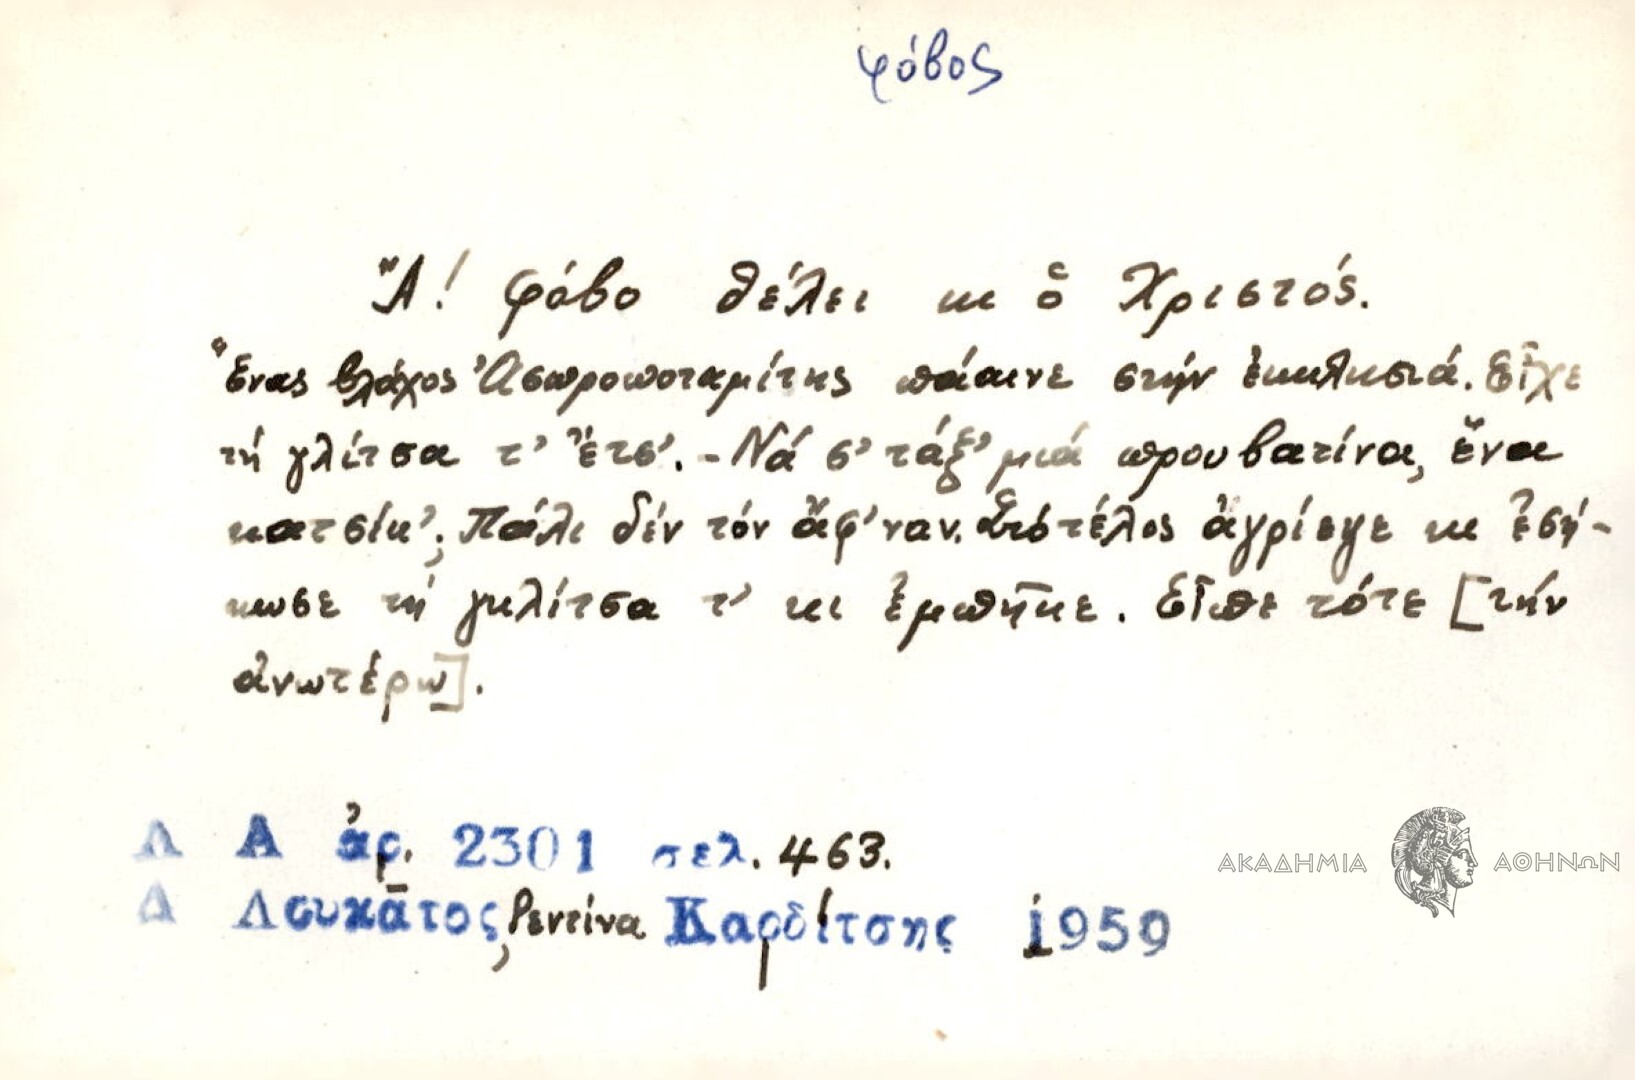 φόβος
Ἄ! φόβο θέλει κι ὁ Χριστός.
Ἕνας βλάχος Ἀσπροποταμίτης πάαινε στήν ἐκκλησιά. Εἶχε
τή γλίτσα τ' ἔτσ'. - Νά σ' τάξ' μιά προυβατίνα, ἕνα
κατσίκ'; Πάλι δέν τόν ἄφ'ναν. Στό τέλος ἀγρίεψε κι ἐσή-
κωσε τή γκλίτσα τ' κι ἐμπῆκε. Εἶπε τότε [τήν
ἀνωτέρω].
Λ Α ἀρ. 2301 σελ. 463.
Δ Λουκᾶτος, Ρεντίνα Καρδίτσης 1959
ΑΚΑΔΗΜΙΑ ΑΘΗΝΩΝ